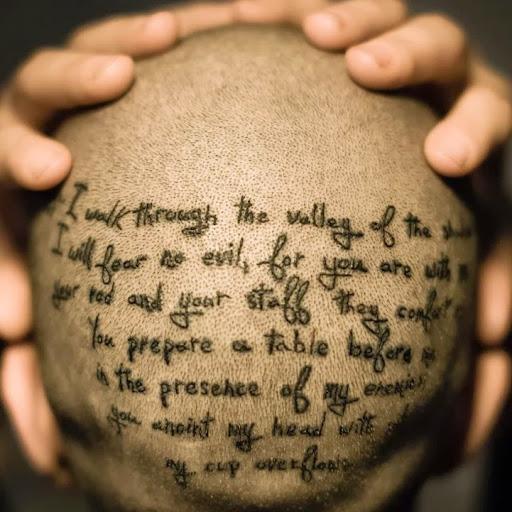 I walk through the valley of the
I will fear no evil, for you are with
your rod and your staff they comfort
You prepare a table before
in the presence of my enemies
you anoint my head with
my cup overflows